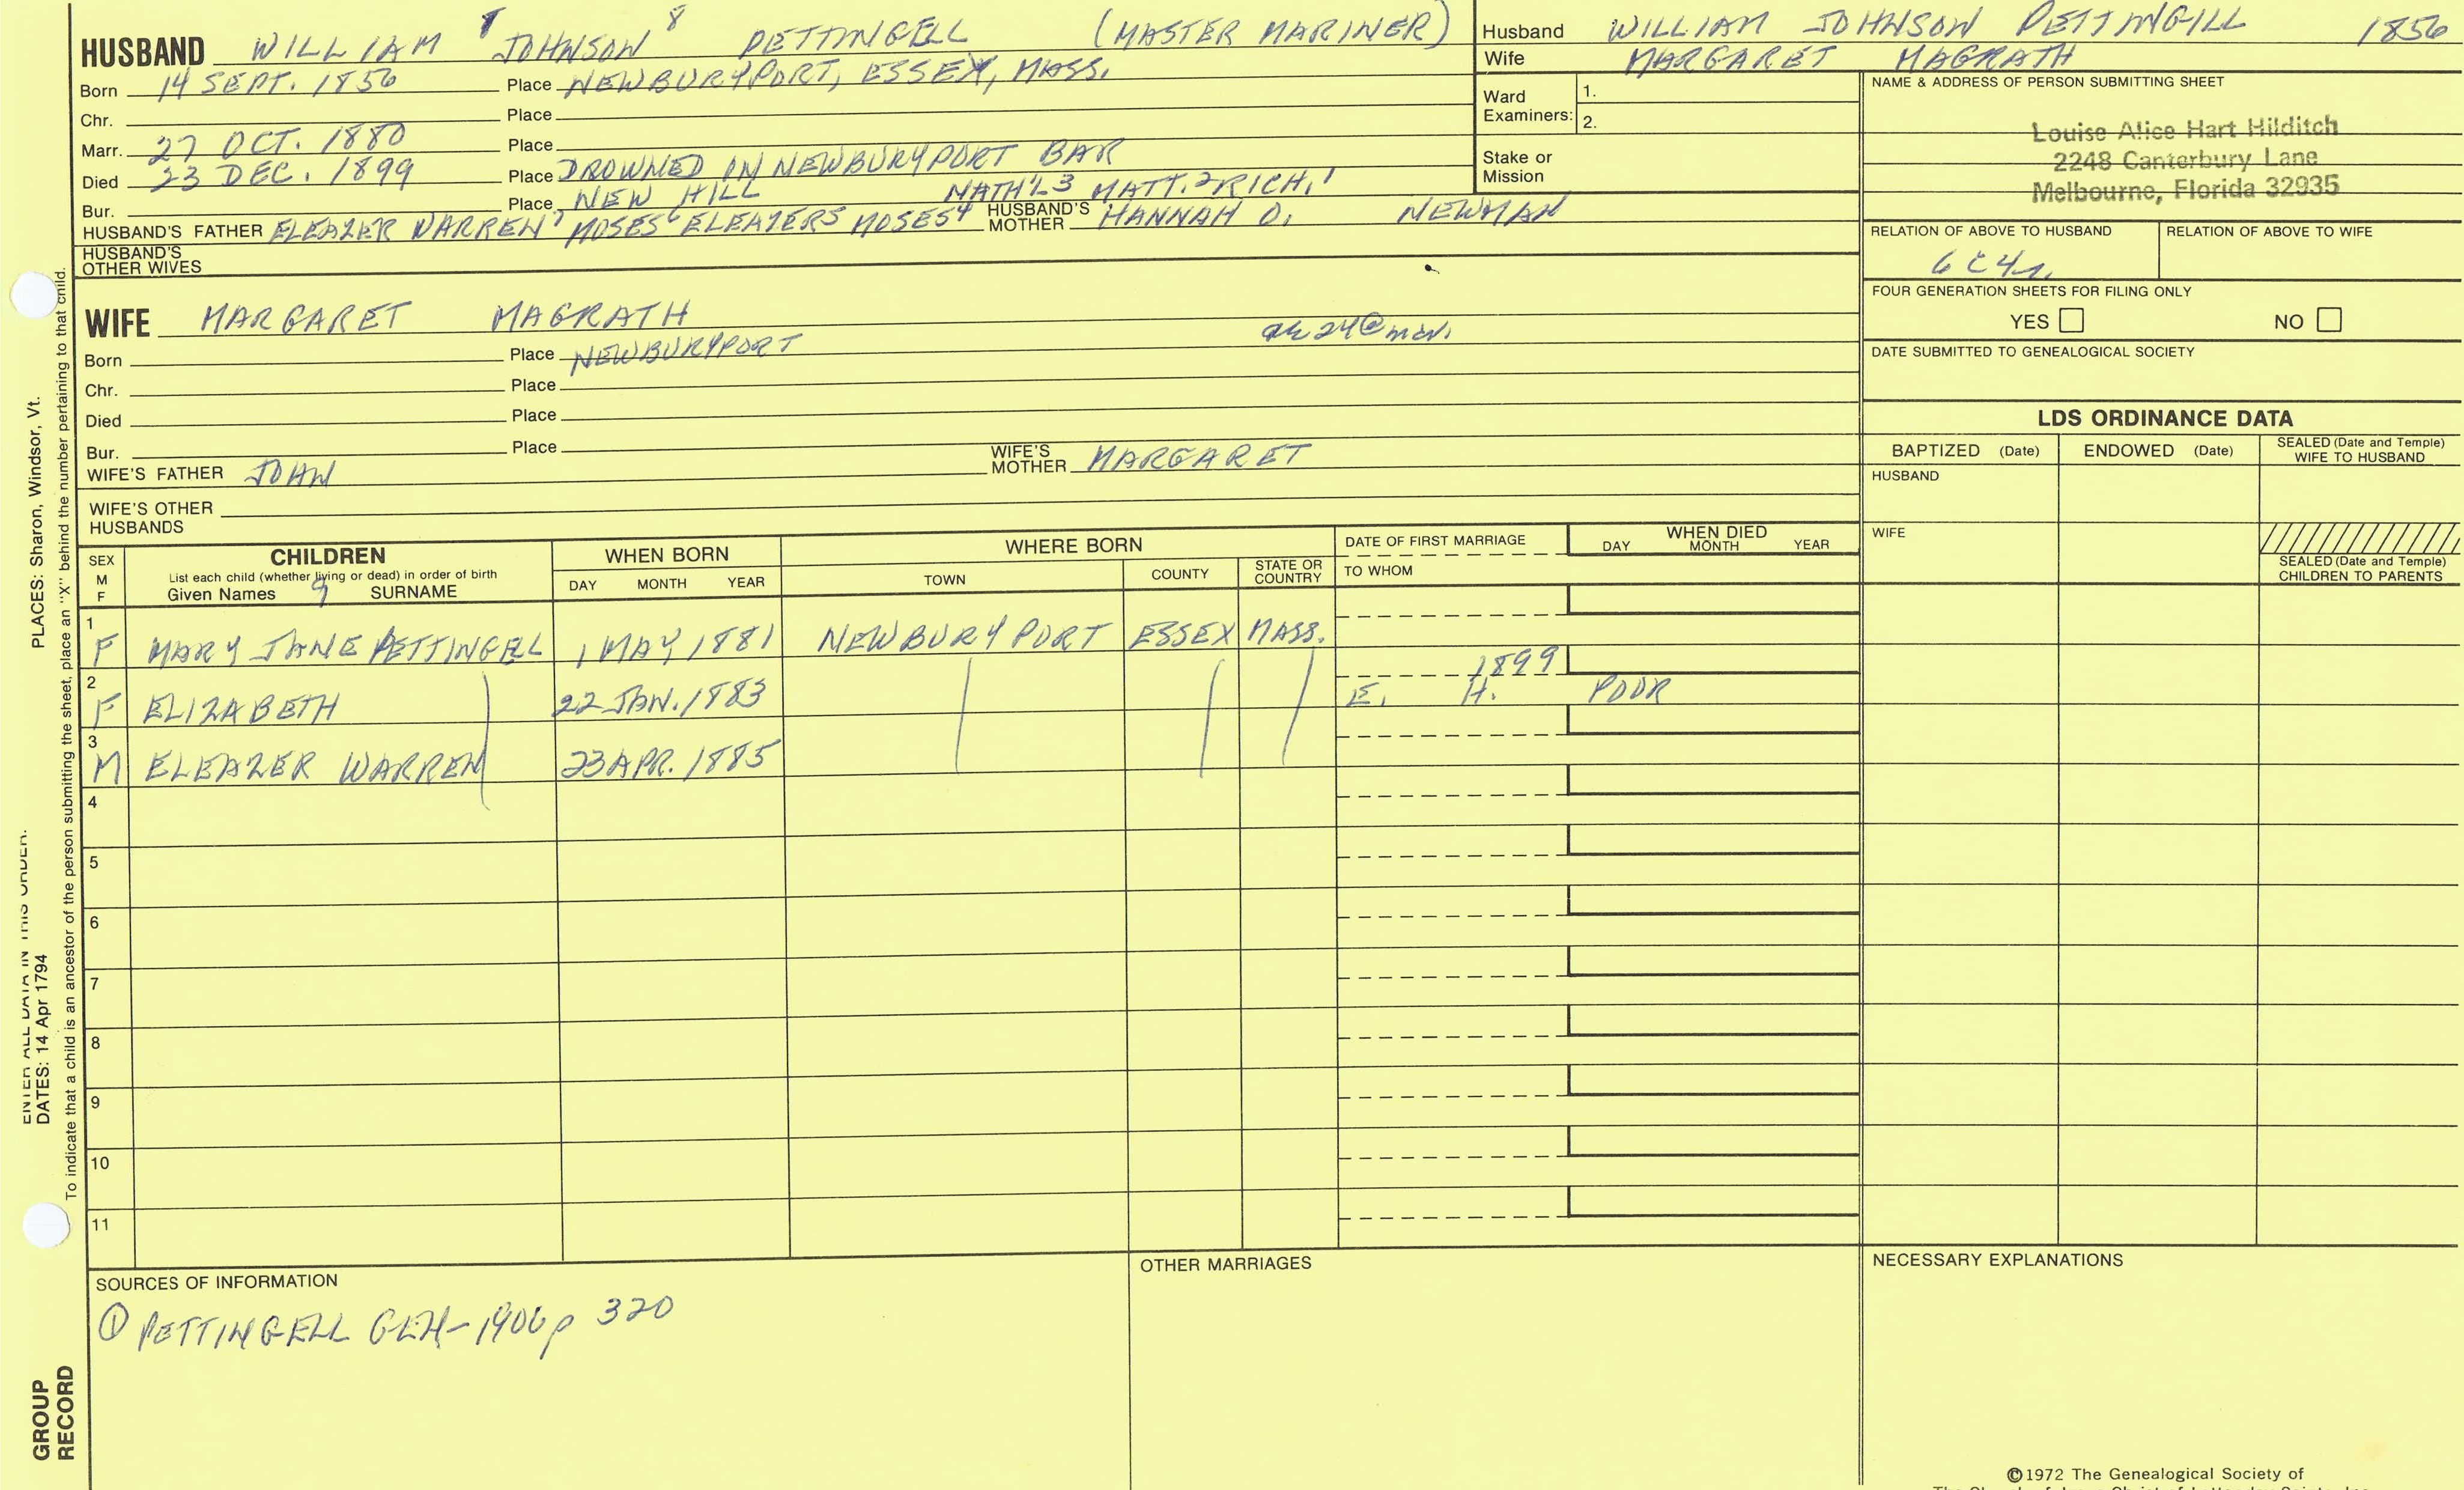 HUSBAND WILLIAM JOHNSON 8 PETTINGELL (MASTER MARINER)
Born 14 SEPT. 1856 Place NEWBURYPORT, ESSEX, MASS.
Chr. Place
Marr. 27 OCT. 1880 Place
Died 23 DEC. 1899 Place DROWNED IN NEWBURYPORT BAR
Bur. Place NEW HILL NATH'L3 MATT.2 RICH.1
HUSBAND'S FATHER ELEAZER WARREN7 MOSES6 ELEAZER5 MOSES4 HUSBAND'S MOTHER HANNAH O. NEWMAN
HUSBAND'S OTHER WIVES
Husband WILLIAM JOHNSON PETTINGILL 1856
Wife MARGARET MAGRATH
Ward Examiners: 1.
2.
Stake or Mission
NAME & ADDRESS OF PERSON SUBMITTING SHEET
Louise Alice Hart Hilditch
2248 Canterbury Lane
Melbourne, Florida 32935
RELATION OF ABOVE TO HUSBAND RELATION OF ABOVE TO WIFE
6C4r.
FOUR GENERATION SHEETS FOR FILING ONLY
YES NO
DATE SUBMITTED TO GENEALOGICAL SOCIETY
WIFE MARGARET MAGRATH
Born Place NEWBURYPORT ae 24@mar.
Chr. Place
Died Place
Bur. Place
WIFE'S FATHER JOHN WIFE'S MOTHER MARGARET
WIFE'S OTHER HUSBANDS
LDS ORDINANCE DATA
BAPTIZED (Date) ENDOWED (Date) SEALED (Date and Temple) WIFE TO HUSBAND
HUSBAND
WIFE
SEALED (Date and Temple) CHILDREN TO PARENTS
SEX M F CHILDREN WHEN BORN WHERE BORN DATE OF FIRST MARRIAGE WHEN DIED
List each child (whether living or dead) in order of birth
Given Names 9 SURNAME DAY MONTH YEAR TOWN COUNTY STATE OR COUNTRY TO WHOM DAY MONTH YEAR
1 F MARY JANE PETTINGELL 1 MAY 1881 NEWBURYPORT ESSEX MASS.
2 F ELIZABETH 22 JAN. 1883 1899 E. H. POOR
3 M ELEAZER WARREN 23 APR. 1885
4
5
6
7
8
9
10
11
SOURCES OF INFORMATION
① PETTINGELL GEN-1906 p 320
OTHER MARRIAGES
NECESSARY EXPLANATIONS
©1972 The Genealogical Society of
ENTER ALL DATA IN THIS ORDER:
DATES: 14 Apr 1794 PLACES: Sharon, Windsor, Vt.
To indicate that a child is an ancestor of the person submitting the sheet, place an "X" behind the number pertaining to that child.
GROUP RECORD